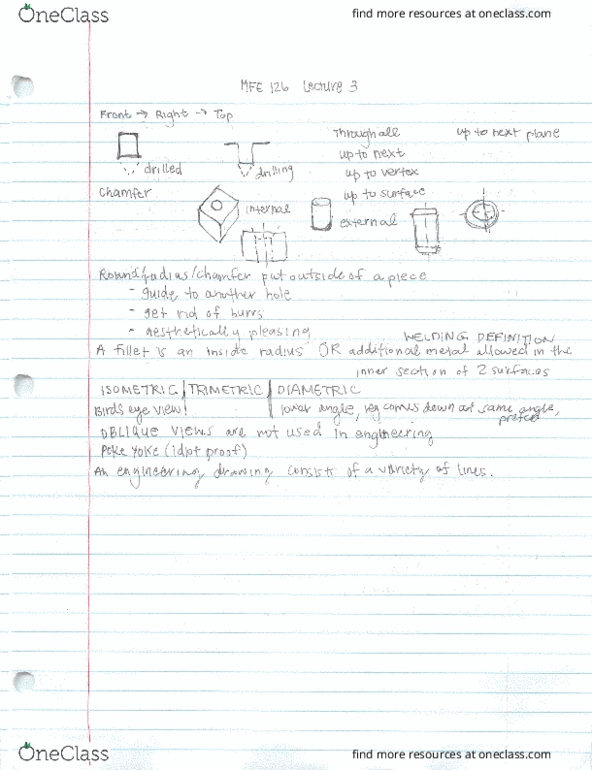 OneClass
find more resources at oneclass.com
MFE 126 Lecture 3
Front → Right → Top
Through all
up to next plane
up to next
drilled
drilling
up to vertex
up to surface
Chamfer
internal
external
Round/radius/chamfer put outside of a piece
- guide to another hole
- get rid of burrs
- aesthetically pleasing
WELDING DEFINITION
A fillet is an inside radius OR additional metal allowed in the
inner section of 2 surfaces
ISOMETRIC | TRIMETRIC | DIAMETRIC
Birds eye view!
lower angle, leg comes down at same angle,
OBLIQUE VIEWS are not used in engineering
POKE YOKE (idiot proof)
An engineering drawing consists of a variety of lines.
OneClass
find more resources at oneclass.com